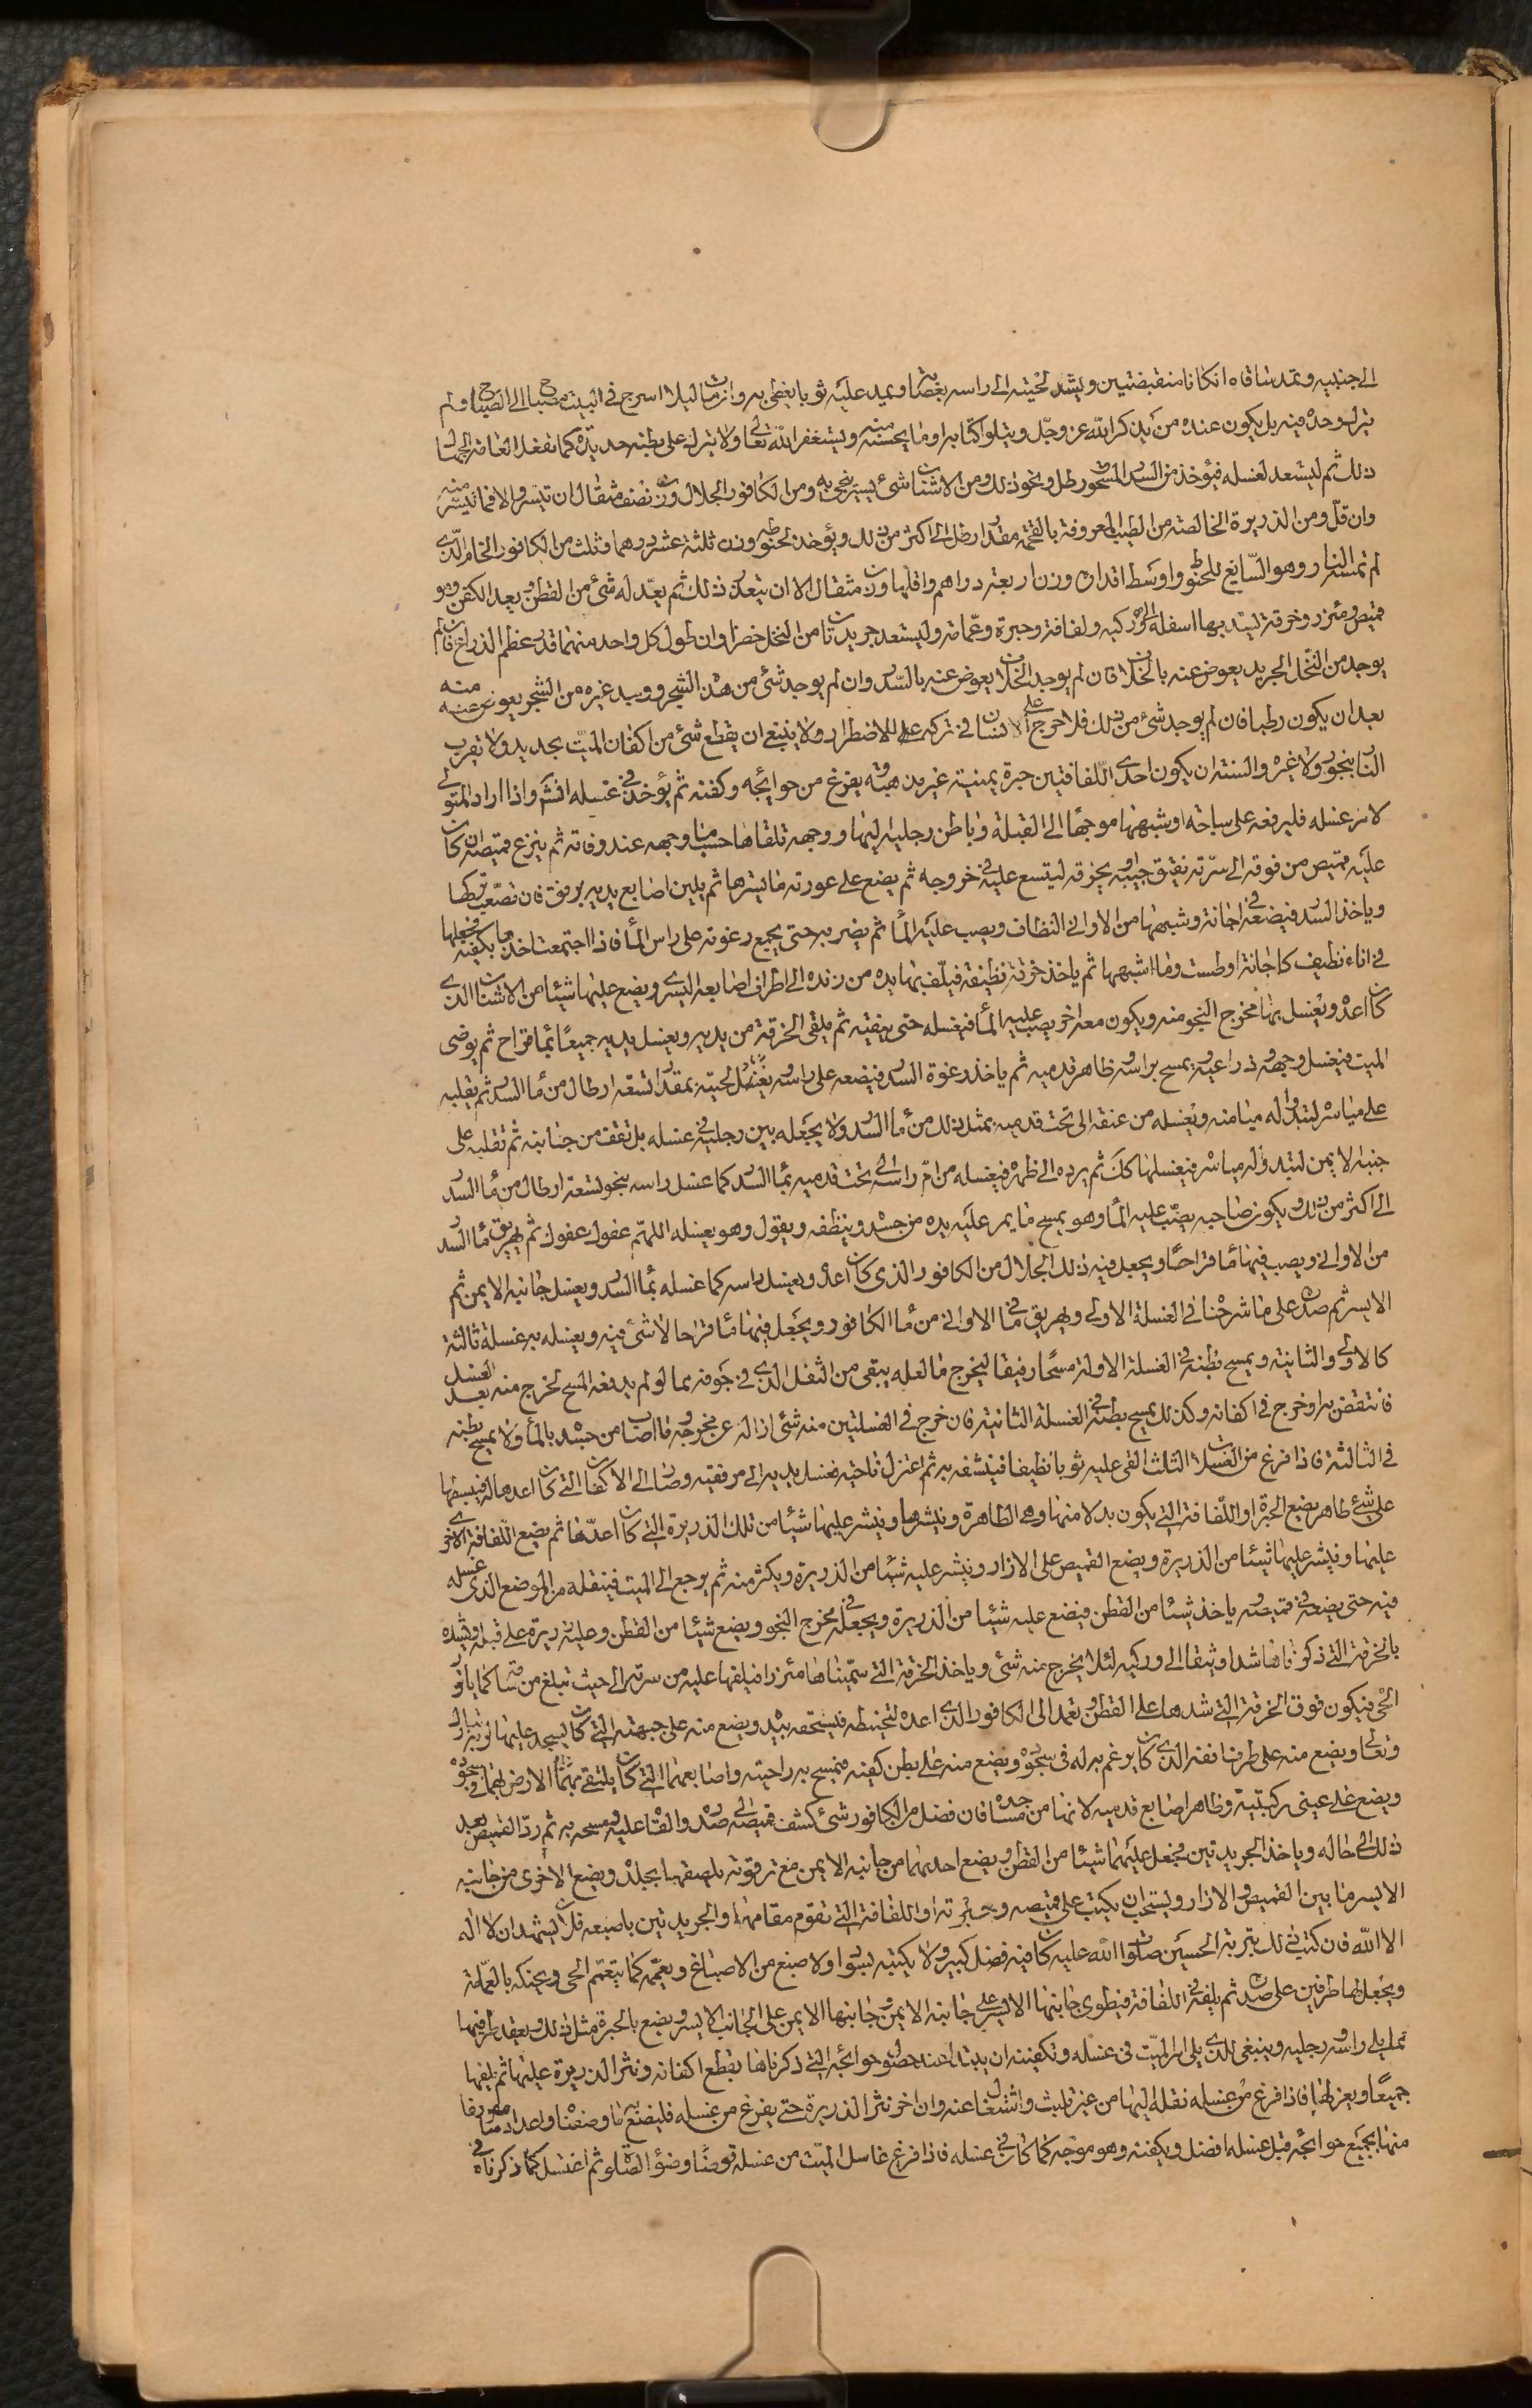 الى جنبيه ويمد ساقاه انكانا منقبضتين ويشد لحيته الى راسه بعصابة ويمد عليه ثوبا يغطى به وان مات ليلا اسرج فى البيت مصباحا الى الصباح ولم
يترك وحده فيه بل يكون عنده من يذكر الله عز وجل ويتلو كتابه او ما يحسنه منه ويستغفر الله تعالى ولا يترك على بطنه حديدة كما تفعل العامة الجهال
ذلك ثم ليستعد لغسله فيؤخذ من السدر المسحوق رطل ونحو ذلك ومن الاشنان شئ يسير ينجى به ومن الكافور الجلال وزن نصف مثقال ان تيسر والا فما تيسر منه
وان قل ومن الذريرة الخالصة من الطيب المعروفة بالقمحة مقدار رطل الى اكثر من ذلك ويؤخذ لحنوطه وزن ثلثة عشر درهما وثلث من الكافور الخام الذى
لم تمسه النار وهو السايغ للحنوط واوسط اقداره وزن اربعة دراهم واقلها وزن مثقال الا ان يتعذر ذلك ثم يعد له شئ من القطن ويعد الكفن وهو
قميص ومئزر وخرقة يشد بها اسفله الى وركيه ولفافة وحبرة وعمامة وليستعد جريدتان من النخل خضراوان طول كل واحد منهما قدر عظم الذراع فان لم
يوجد من النخل الجريد يعوض عنه بالخلاف فان لم يوجد الخلاف يعوض عنه بالسدر وان لم يوجد شئ من هذا الشجر ووجد غيره من الشجر يعوض عنه منه
بعد ان يكون رطبا فان لم يوجد شئ من ذلك فلا حرج على الانسان فى تركه للاضطرار ولا ينبغى ان يقطع شئ من اكفان الميت بحديد ولا تقرب
النار ببخور ولا غيره والسنة ان يكون احدى اللفافتين حبرة يمنية غير مذهبة وتفرغ من حوائجه وكفنه ثم يؤخذ فى غسله انش واذا اراد المتولى
لامر غسله فليرفعه على ساجة او شبهها موجها الى القبلة وباطن رجليه اليها ووجهه تلقاها حسب ما وجهه عند وفاته ثم ينزع قميصه ان كان
عليه قميص من فوقه الى سرته يفتق جيبه او يخرقه ليتسع عليه فى خروجه ثم يضع على عورته ما يسترها ثم يلين اصابع يديه برفق فان تصعب تركها
وياخذ السدر فيضعه فى اجانة وشبهها من الاوانى النظاف ويصب عليه الماء ثم يضربه حتى يجمع رغوته على راس الماء فاذا اجتمعت اخذها بكفيه فجعلها
فى اناء نظيف كاجانة او طست وما اشبهها ثم ياخذ خرقة نظيفة فيلف بها يده من زنده الى اطراف اصابعه اليسرى ويضع عليها شيئا من الاشنان الذى
كان اعده ويغسل بها مخرج النجو منه ويكون معه اخر يصب عليه الماء فيغسله حتى ينقيه ثم يلقى الخرقة من يديه ويغسل يديه جميعا بماء قراح ثم يوضى
الميت فيغسل وجهه وذراعيه ويمسح براسه وظاهر قدميه ثم ياخذ رغوة السدر فيضعه على راسه ويغسله ويغسل لحيته بمقدار تسعة ارطال من ماء السدر ثم يقلبه
على مياسره لتبدو له ميامنه ويغسله من عنقه الى تحت قدميه بمثل ذلك من ماء السدر ولا يجعله بين رجليه فى غسله بل تقف من جانبه ثم تقلبه على
جنبه الايمن لتبدو له مياسره فيغسلها كك ثم يرده الى ظهره فيغسله من ام راسه الى تحت قدميه بماء السدر كما غسل راسه بنحو تسعة ارطال من ماء السدر
الى اكثر من ذلك ويكون صاحبه يصب عليه الماء وهو يمسح ما يمر عليه يده من جسده وينظفه ويقول وهو يغسله اللهم عفوك عفوك ثم يهريق ماء السدر
من الاوانى ويصب فيها ماء قراحا ويجعل فيه ذلك الجلال من الكافور الذى كان اعده ويغسل راسه كما غسله بماء السدر ويغسل جانبه الايمن ثم
الايسر ثم صدره على ما شرحنا فى الغسلة الاولى ويهريق ما فى الاوانى من ماء الكافور ويجعل فيها ماء قراحا لا شئ فيه ويغسله به غسلة ثالثة
كالاولى والثانية ويمسح بطنه فى الغسلة الاولة مسحا رفيقا ليخرج ما لعله يبقى من الثفل الذى فى جوفه مما لو لم يدفعه المسح لخرج منه بعد الغسل
فانتقض به او خرج فى اكفانه وكذلك يمسح بطنه فى الغسلة الثانية فان خرج فى الغسلتين منه شئ ازاله عن مخرجه وما اصاب من جسده بالماء ولا يمسح بطنه
فى الثالثة فاذا فرغ من الغسلات الثلث القى عليه ثوبا نظيفا فينشفه به ثم اعتزل ناحية فغسل يديه الى مرفقيه وصار الى الاكفان التى كان اعدها له فيبسطها
على شئ طاهر يضع الحبرة او اللفافة التى يكون بدلا منها وهى الظاهرة وينشرها وينثر عليها شيئا من تلك الذريرة التى كان اعدها ثم يضع اللفافة الاخرى
عليها وينثر عليها شيئا من الذريرة ويضع القميص على الازار وينثر عليه شيئا من الذريرة ويكثر منه ثم يرجع الى الميت فينقله من الموضع الذى غسله
فيه حتى يضعه فى قميصه وياخذ شيئا من القطن فيضع عليه شيئا من الذريرة ويجعله فى مخرج النجو ويضع شيئا من القطن وعليه ذريرة على قبله ويشده
بالخرقة التى ذكرناها شدا وثيقا الى وركيه لئلا يخرج منه شئ وياخذ الخرقة التى سميناها مئزرا فيلفها عليه من سرته الى حيث تبلغ من ساقيه كما ياتزر
الحى فيكون فوق الخرقة التى شدها على القطن ويعمد الى الكافور الذى اعده لتحنيطه فيسحقه بيده ويضع منه على جبهته التى كان يسجد عليها لربه تبارك
وتعالى ويضع منه على طرف انفه الذى كان يرغم به له فى سجوده ويضع منه على بطن كفيه فيمسح به راحتيه واصابعهما التى كان يلتقى بهما الارض فى سجوده
ويضع على عينى ركبتيه وظاهر اصابع قدميه لانها من مساجده فان فضل من الكافور شئ كشف قميصه الى صدره والقاه عليه ومسحه به ثم رد القميص بعد
ذلك الى حاله وياخذ الجريدتين فيجعل عليهما شيئا من القطن ويضع احديهما من جانبه الايمن مع ترقوته يلصقها بجلده ويضع الاخرى من جانبه
الايسر ما بين القميص والازار ويستحب ان يكتب على قميصه وحبرته او اللفافة التى تقوم مقامها والجريدتين باصبعه فلان يشهد ان لا اله
الا الله فان كتب ذلك بتربة الحسين صلوات الله عليه كان فيه فضل كبير ولا يكتبه بسواد ولا صبغ من الاصباغ ويعممه كما يتعمم الحى ويحنكه بالعمامة
ويجعل لها طرفين على صدره ثم يلفه فى اللفافة فيطوى جانبها الايسر على جانبه الايمن وجانبها الايمن على الجانب الايسر ويضع بالحبرة مثل ذلك ويعقد طرفيها
مما يلى راسه ورجليه وينبغى للذى يلى امر الميت فى غسله وتكفينه ان يبتدا عند حصول حوائجه التى ذكرناها بقطع اكفانه ونثر الذريرة عليها ثم يلفها
جميعا ويعزلها فاذا فرغ من غسله نقله اليها من غير تلبث واشتغال عنه وان اخر نثر الذريرة حتى يفرغ من غسله فليضع به ما وصفناه واعداد مفروغا
منها بجميع حوائجه قبل غسله افضل ويكفنه وهو موجه كما كان فى غسله فاذا فرغ غاسل الميت من غسله توضا وضوء الصلوة ثم اغتسل كما ذكرناه فى